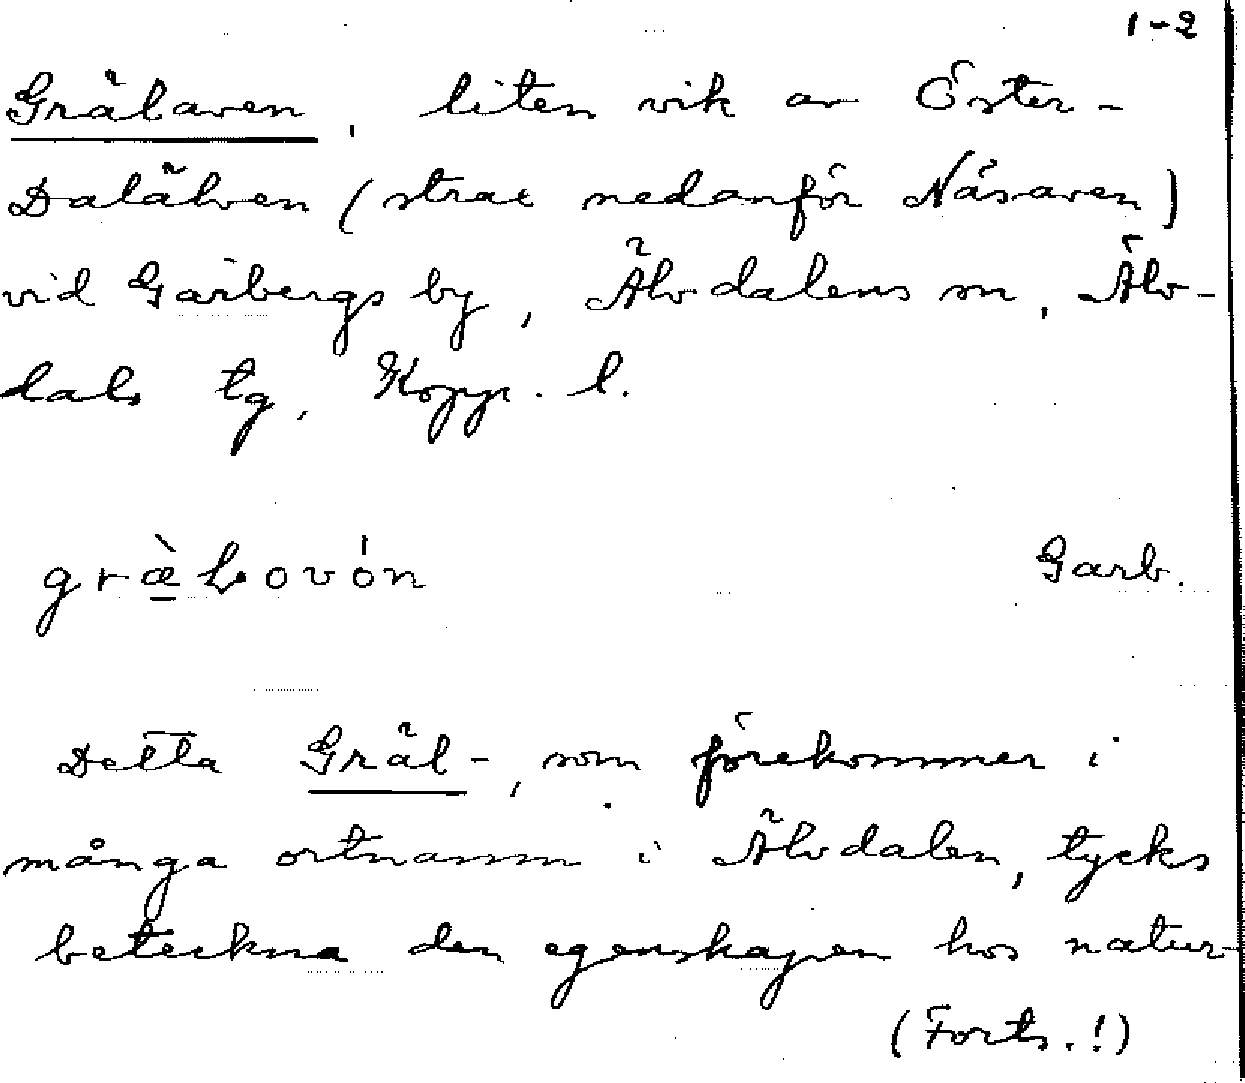 1-2
Grälaven, liten vik av Öster-
Dalälven (strax nedanför Näsaven)
vid Garbergs by, Älvdalens sn, Älv-
dals tg, Kopp. l.
Garb.
Detta Gräl-, som förekommer i
många ortnamn i Älvdalen, tycks
beteckna den egenskapen hos natur-
(Forts.!)